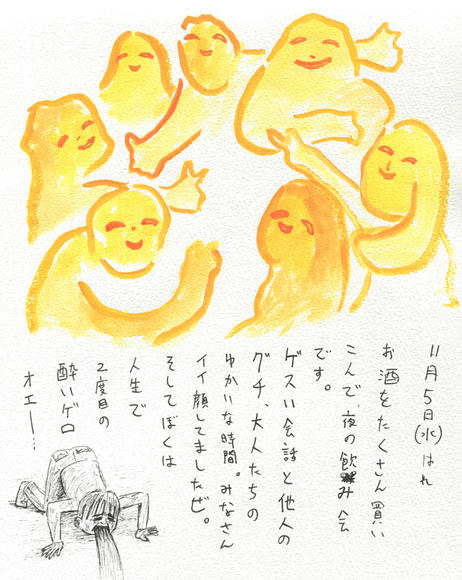 11月5日(水)はれ
お酒をたくさん買い
こんで、夜の飲み会
です。
ゲスい会話と他人の
グチ、大人たちの
ゆかいな時間。みなさん
イイ顔してましたぜ。
そしてぼくは
人生で
2度目の
酔いゲロ
オエー…